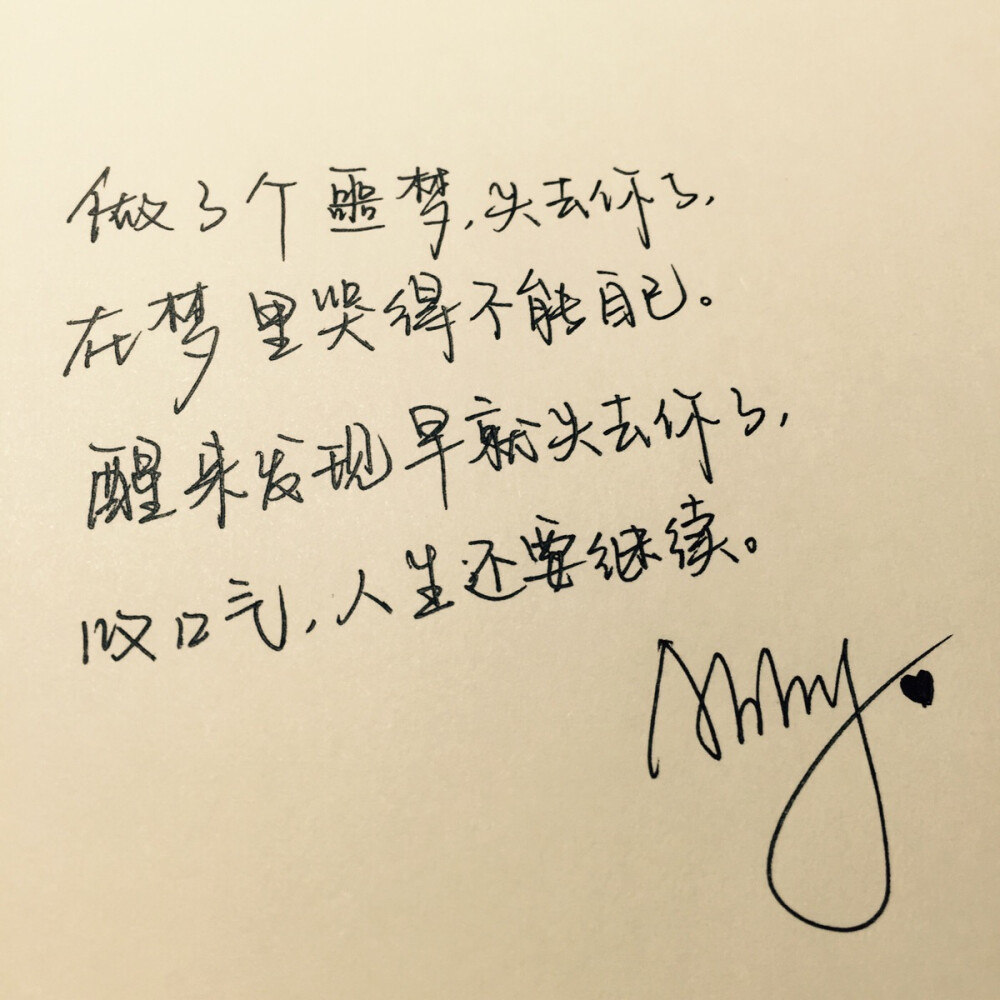 做了个噩梦,失去你了,
在梦里哭得不能自已。
醒来发现早就失去你了,
叹口气,人生还要继续。